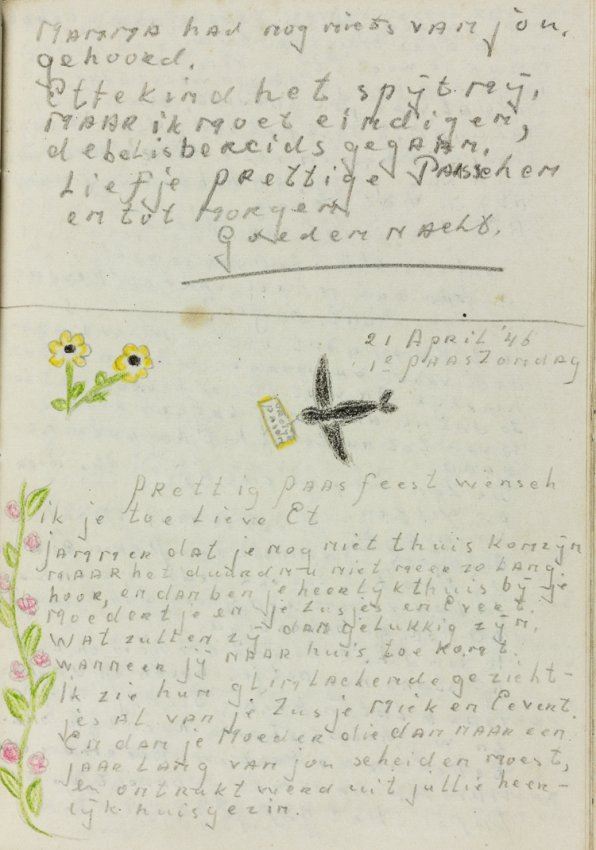 MAMMA had nog niets van jou,
gehoord.
Ettekind het spÿt mÿ,
MAAR ik moet eindigen,
de bel is bereids gegaan.
Liefje prettige Paasschen
en tot morgen
Goeden nacht.
21 April '46
1e Paaszondag
Prettig Paasfeest wensch
ik je toe Lieve Et
jammer dat je nog niet thuis kon zÿn
maar het duurd nu niet meer zo lang
hoor, en dan ben je heerlÿk thuis bÿ je
Moedertje en je zusjes en Evert.
Wat zullen zÿ dan gelukkig zÿn,
wanneer jÿ naar huis toe komt.
Ik zie hun glimlachende gezicht-
jes al van je zusje Miek en Eevert.
En dan je Moeder die dan naar een
jaar lang van jou scheiden moest,
en ontrukt werd uit jullie heer-
lÿk huisgezin.